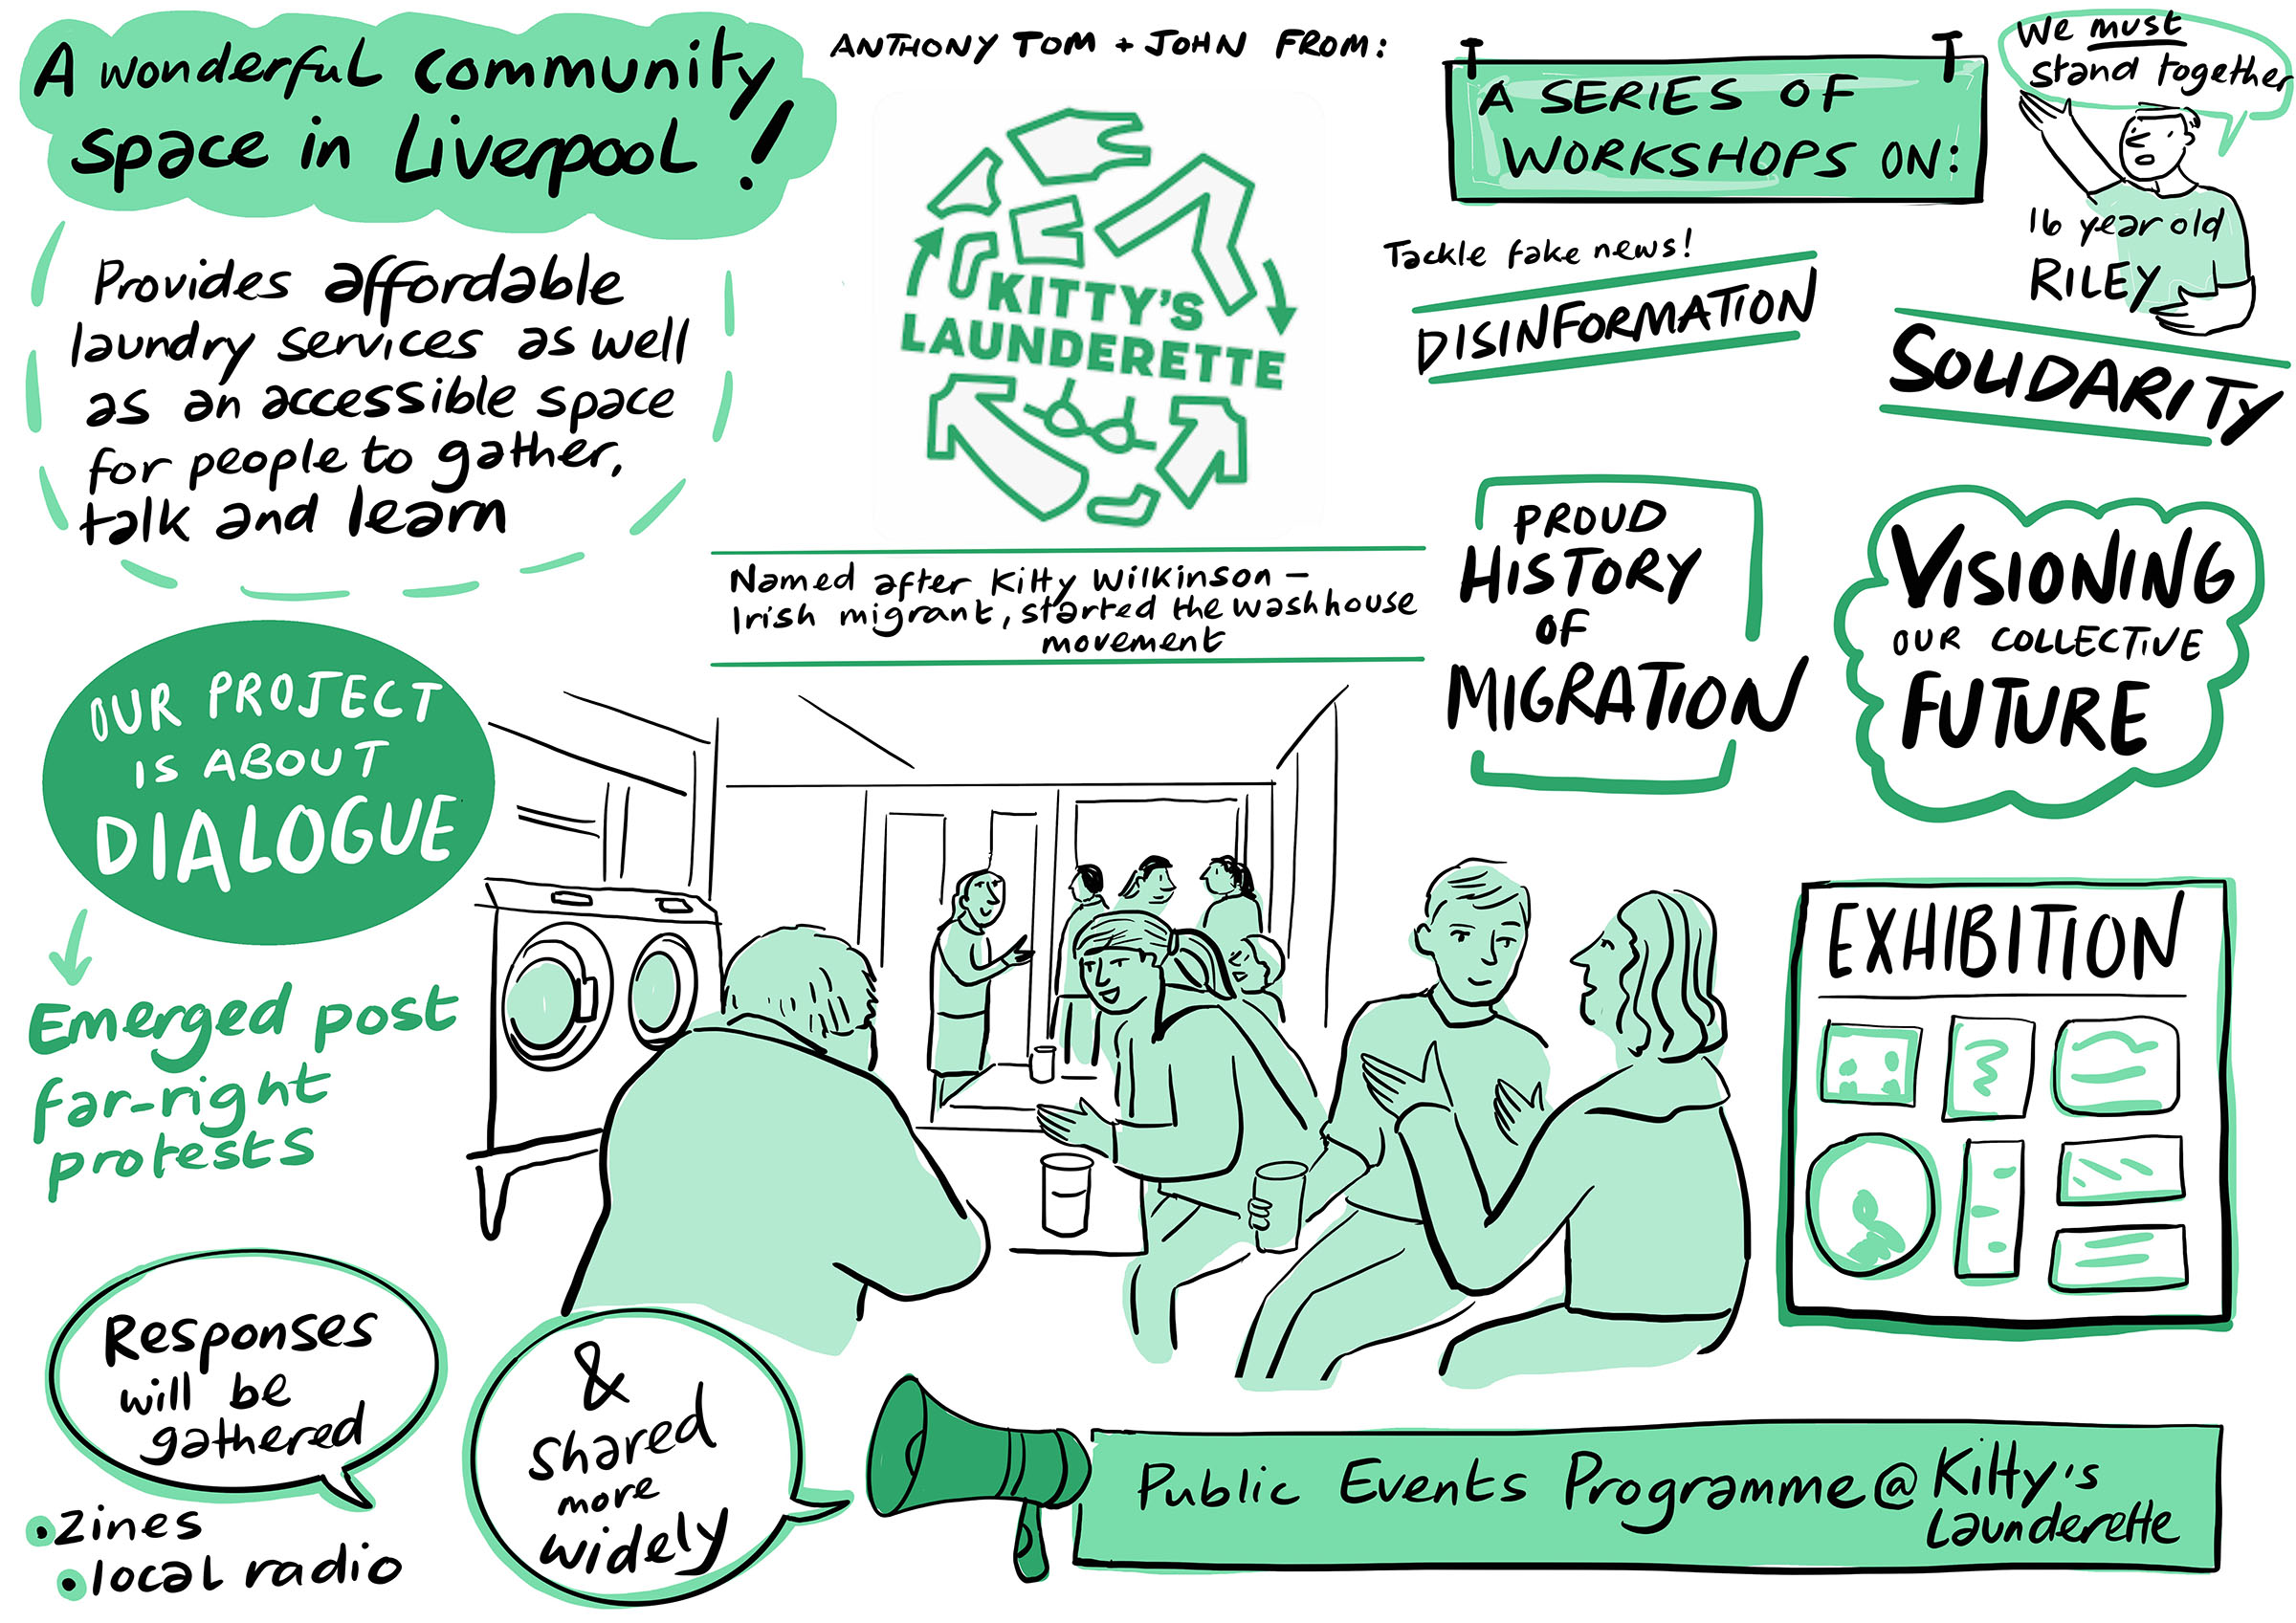 A wonderful community
space in Liverpool!
Provides affordable
laundry services as well
as an accessible space
for people to gather,
talk and learn
OUR PROJECT
IS ABOUT
DIALOGUE
Emerged post
far-right
protests
Responses
will be
gathered
• zines
• local radio
&
shared
more
widely
ANTHONY TOM + JOHN FROM:
KITTY'S
LAUNDERETTE
Named after Kitty Wilkinson –
Irish migrant, started the washhouse
movement
A SERIES OF
WORKSHOPS ON:
Tackle fake news!
DISINFORMATION
We must
stand together
16 year old
RILEY
SOLIDARITY
PROUD
HISTORY
OF
MIGRATION
VISIONING
OUR COLLECTIVE
FUTURE
EXHIBITION
Public Events Programme @ Kitty's
Launderette